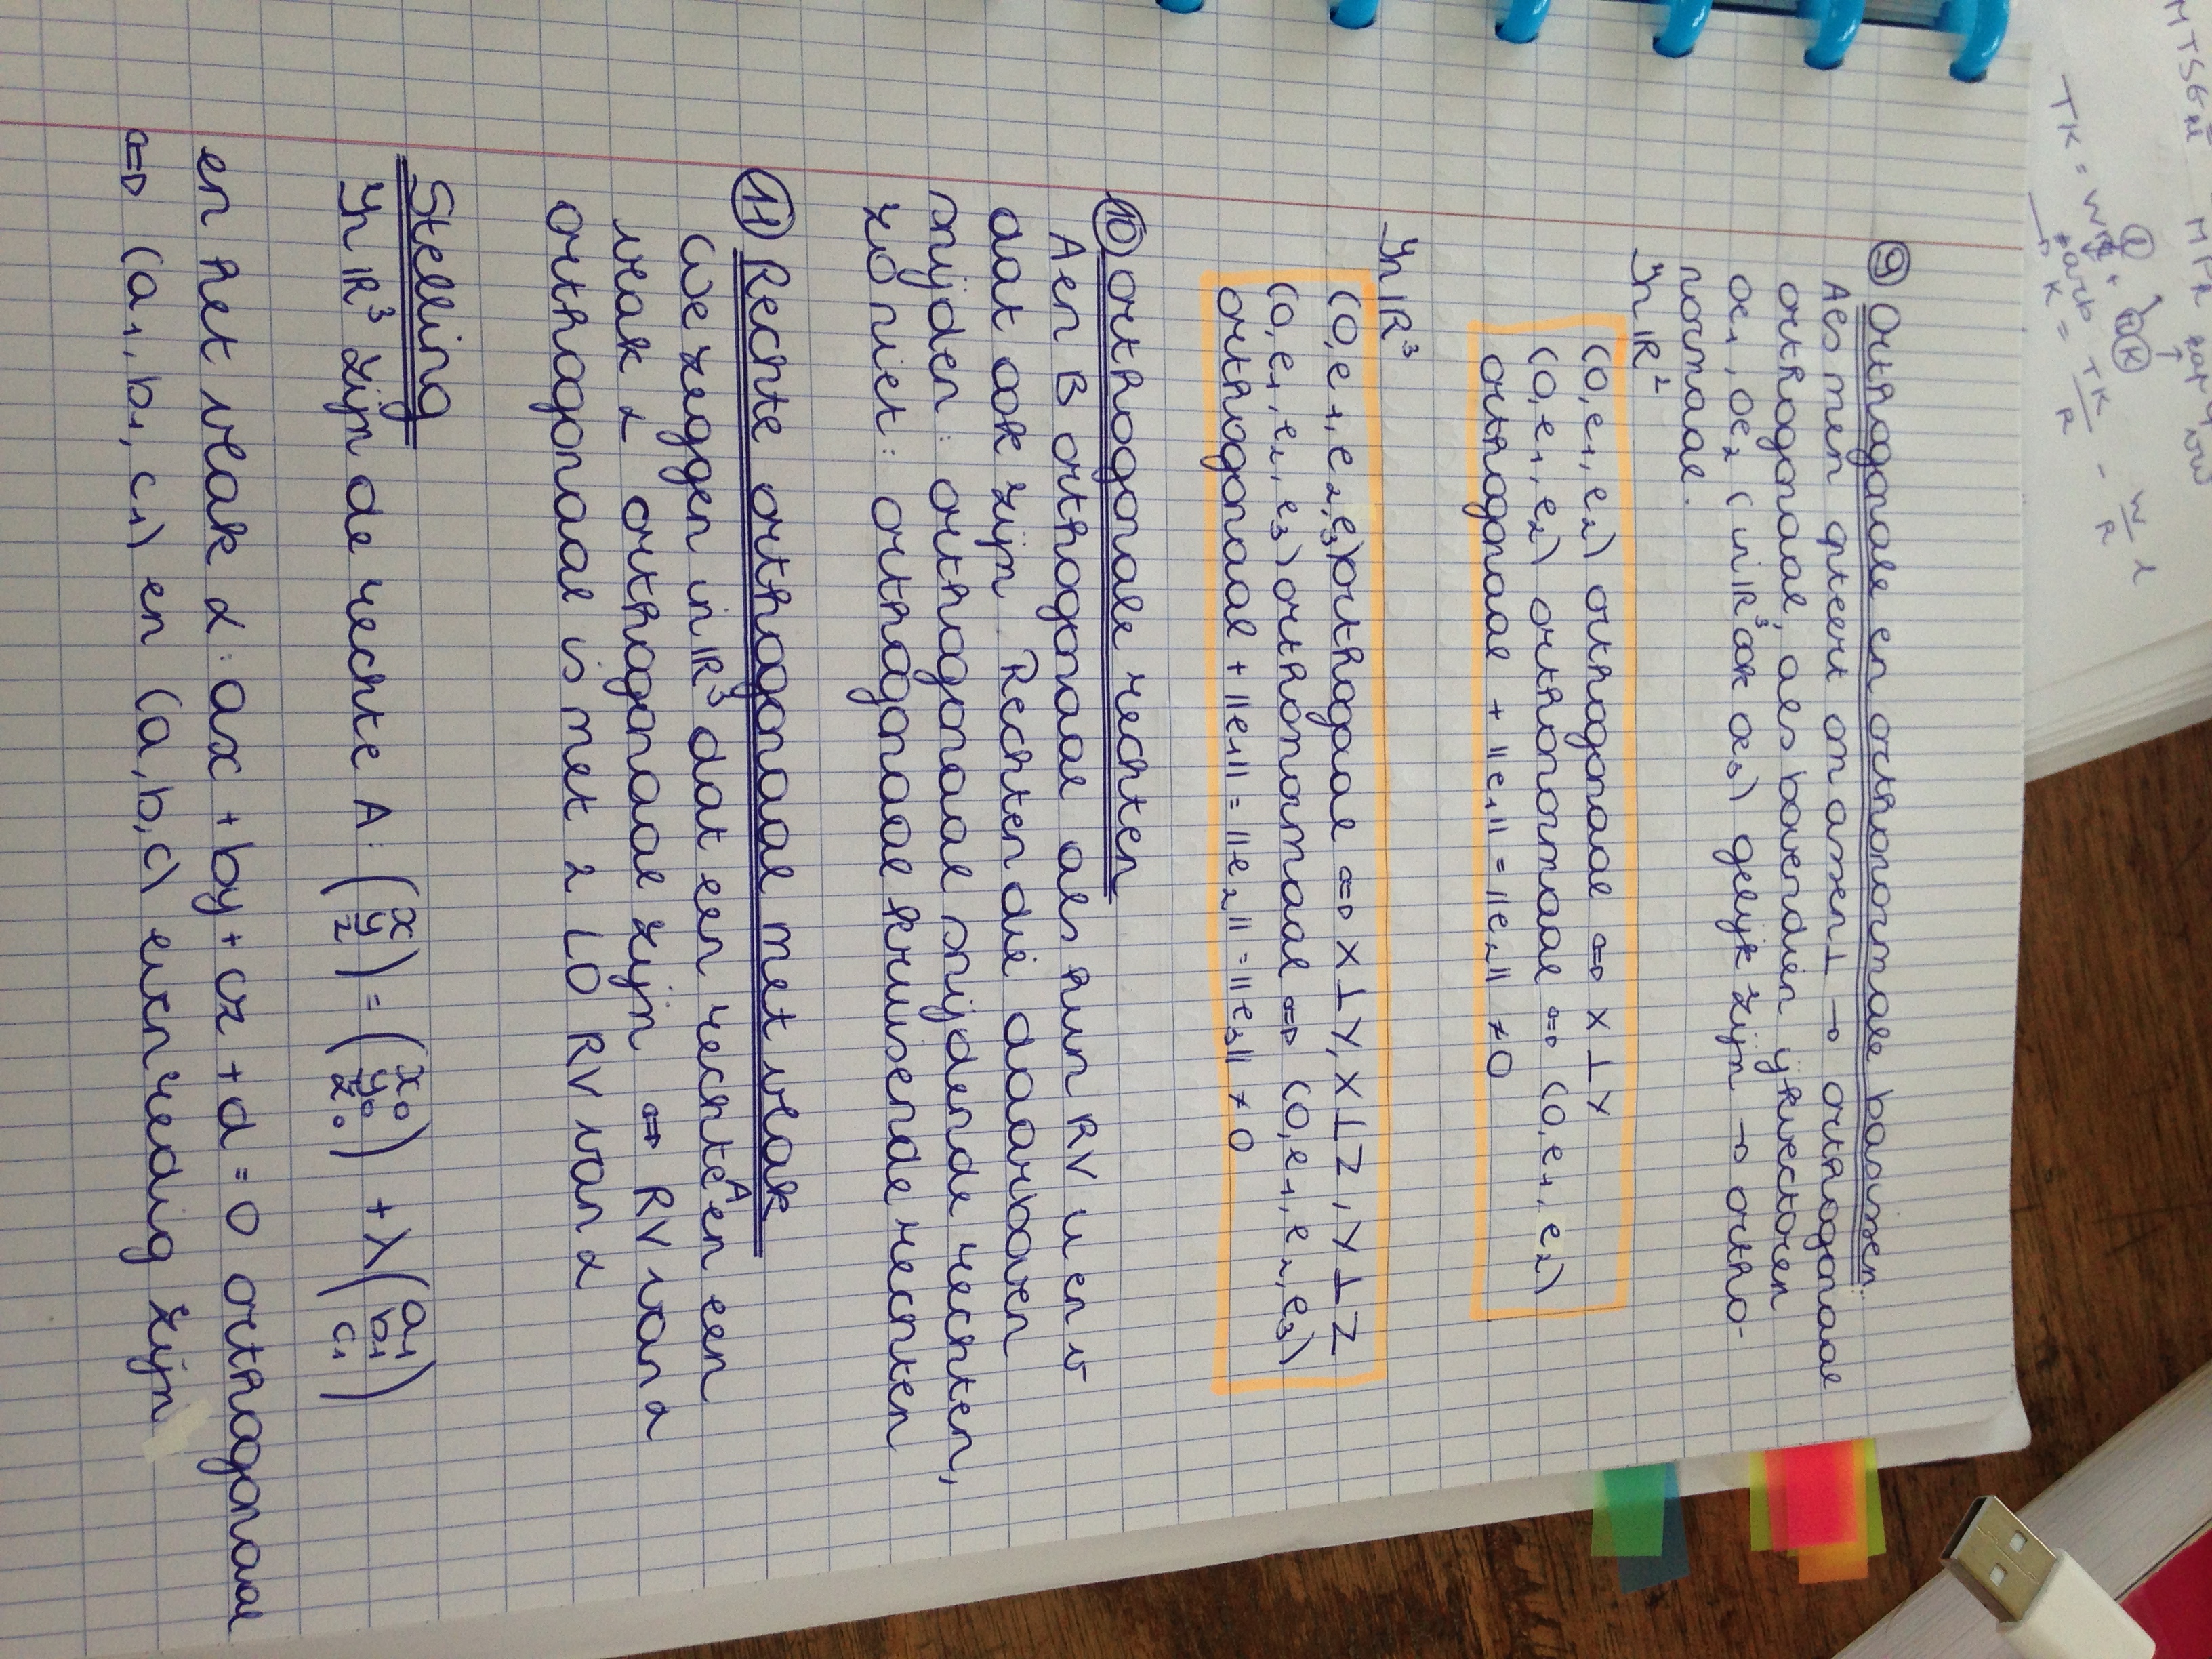 ⑨ Orthogonale en orthonormale basissen:
Als men ijkt op assen ⊥ → orthogonaal
orthogonaal, als bovendien ijkvectoren
oe₁, oe₂ (in ℝ³ ook oe₃) gelijk zijn → ortho-
normaal.
In ℝ²
(o, e₁, e₂) orthogonaal ⇔ X ⊥ Y
(o, e₁, e₂) orthonormaal ⇔ (o, e₁, e₂)
orthogonaal + ||e₁|| = ||e₂|| ≠ 0
In ℝ³
(o, e₁, e₂, e₃) orthogaal ⇔ X ⊥ Y, X ⊥ Z, Y ⊥ Z
(o, e₁, e₂, e₃) orthonormaal ⇔ (o, e₁, e₂, e₃)
orthogonaal + ||e₁|| = ||e₂|| = ||e₃|| ≠ 0
⑩ orthogonale rechten
A en B orthogonaal als hun RV u en v
dat ook zijn. Rechten die daarboven
snijden: orthogonaal snijdende rechten,
zo niet: orthogonaal kruisende rechten
⑪ Rechte orthogonaal met vlak
We zeggen in ℝ³ dat een rechte A en een
vlak α orthogonaal zijn ⇔ RV van a
orthogonaal is met 2 LO RV van α
Stelling
In ℝ³ zijn de rechte A: (x y z) = (x₀ y₀ z₀) + λ (a₁ b₁ c₁)
en het vlak α: ax + by + cz + d = 0 orthogonaal
⇔ (a₁, b₁, c₁) en (a, b, c) evenredig zijn
TK = 
K = TK/R - W/R L